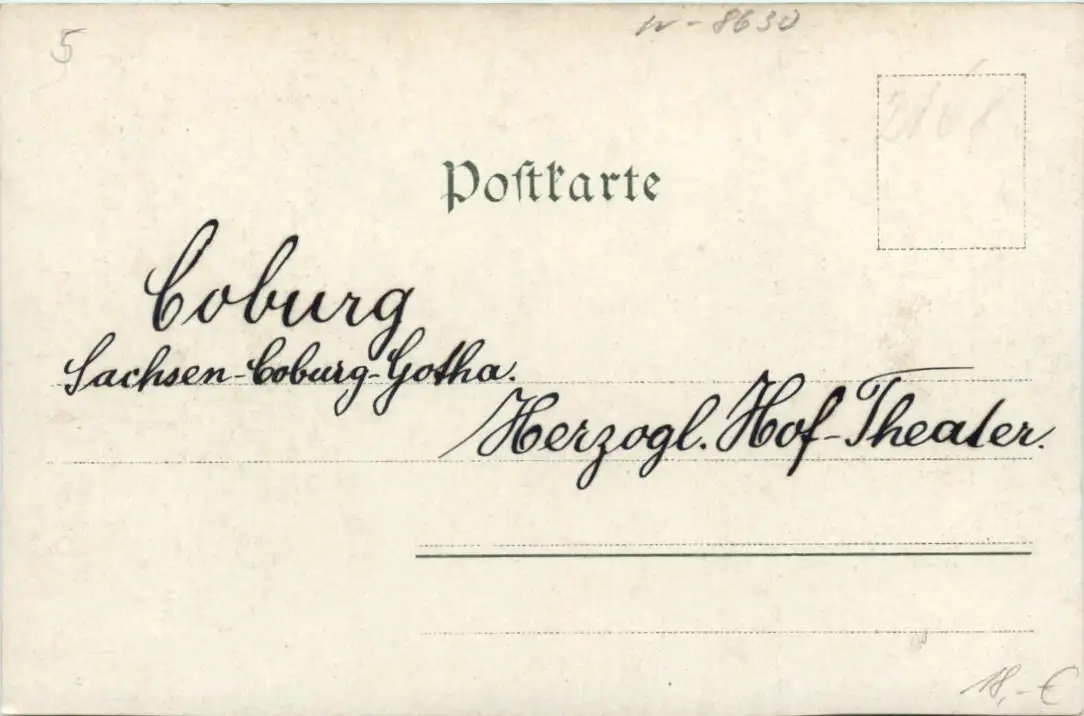 5
W-8630
Postkarte
Coburg
Sachsen-Coburg-Gotha.
Herzogl. Hof-Theater.
18,-€